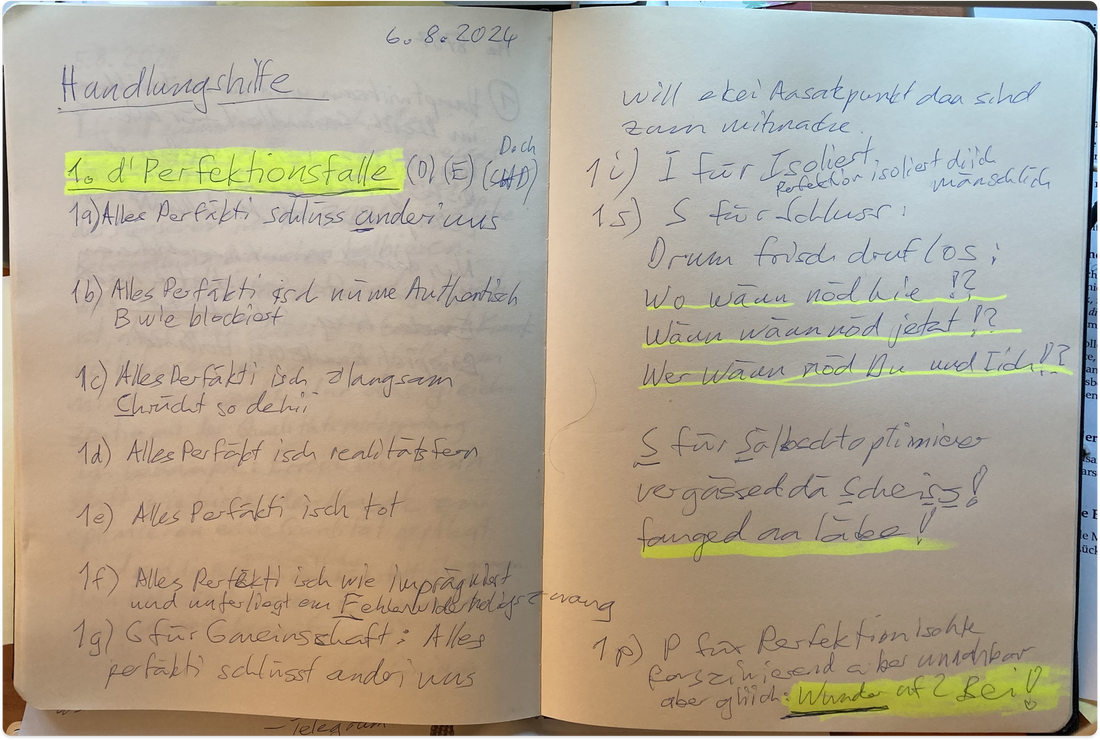 6.8.2024
Handlungshilfe
1. d'Perfektionsfalle (D) (E) (CHD)
Doch
1a) Alles Perfäkti schlüss anderi uus
1b) Alles Perfäkti isch nüme Authentisch
B wie blockiert
1c) Alles Perfäkti isch z langsam
Chrücht so dehii
1d) Alles Perfäkt isch realitätsfern
1e) Alles Perfäkti isch tot
1f) Alles Perfäkti isch wie imprägniert
und unterliegt em Fehlerwiderholigszwang
1g) G für Gmeinsschaft: Alles
perfäkti schlüsst anderi uus
will ekei Aasatzpunkt daa sind
zum mitmache.
1i) I für Isoliert
Perfektion isoliert diich
mänschlich
1s) S für Schluss:
Drum frisch druf los:
Wo wänn nöd hie !?
Wänn wänn nöd jetzt !?
Wer wänn nöd Du und Iich !?
S für Sälbschtoptimierer
vergässed dä Scheiss!
fanged aa läbe!
1p) P für Perfektionischte
faszinierend aber unnahbar
aber gliich: Wunder uf 2 Bei!
- Telegram